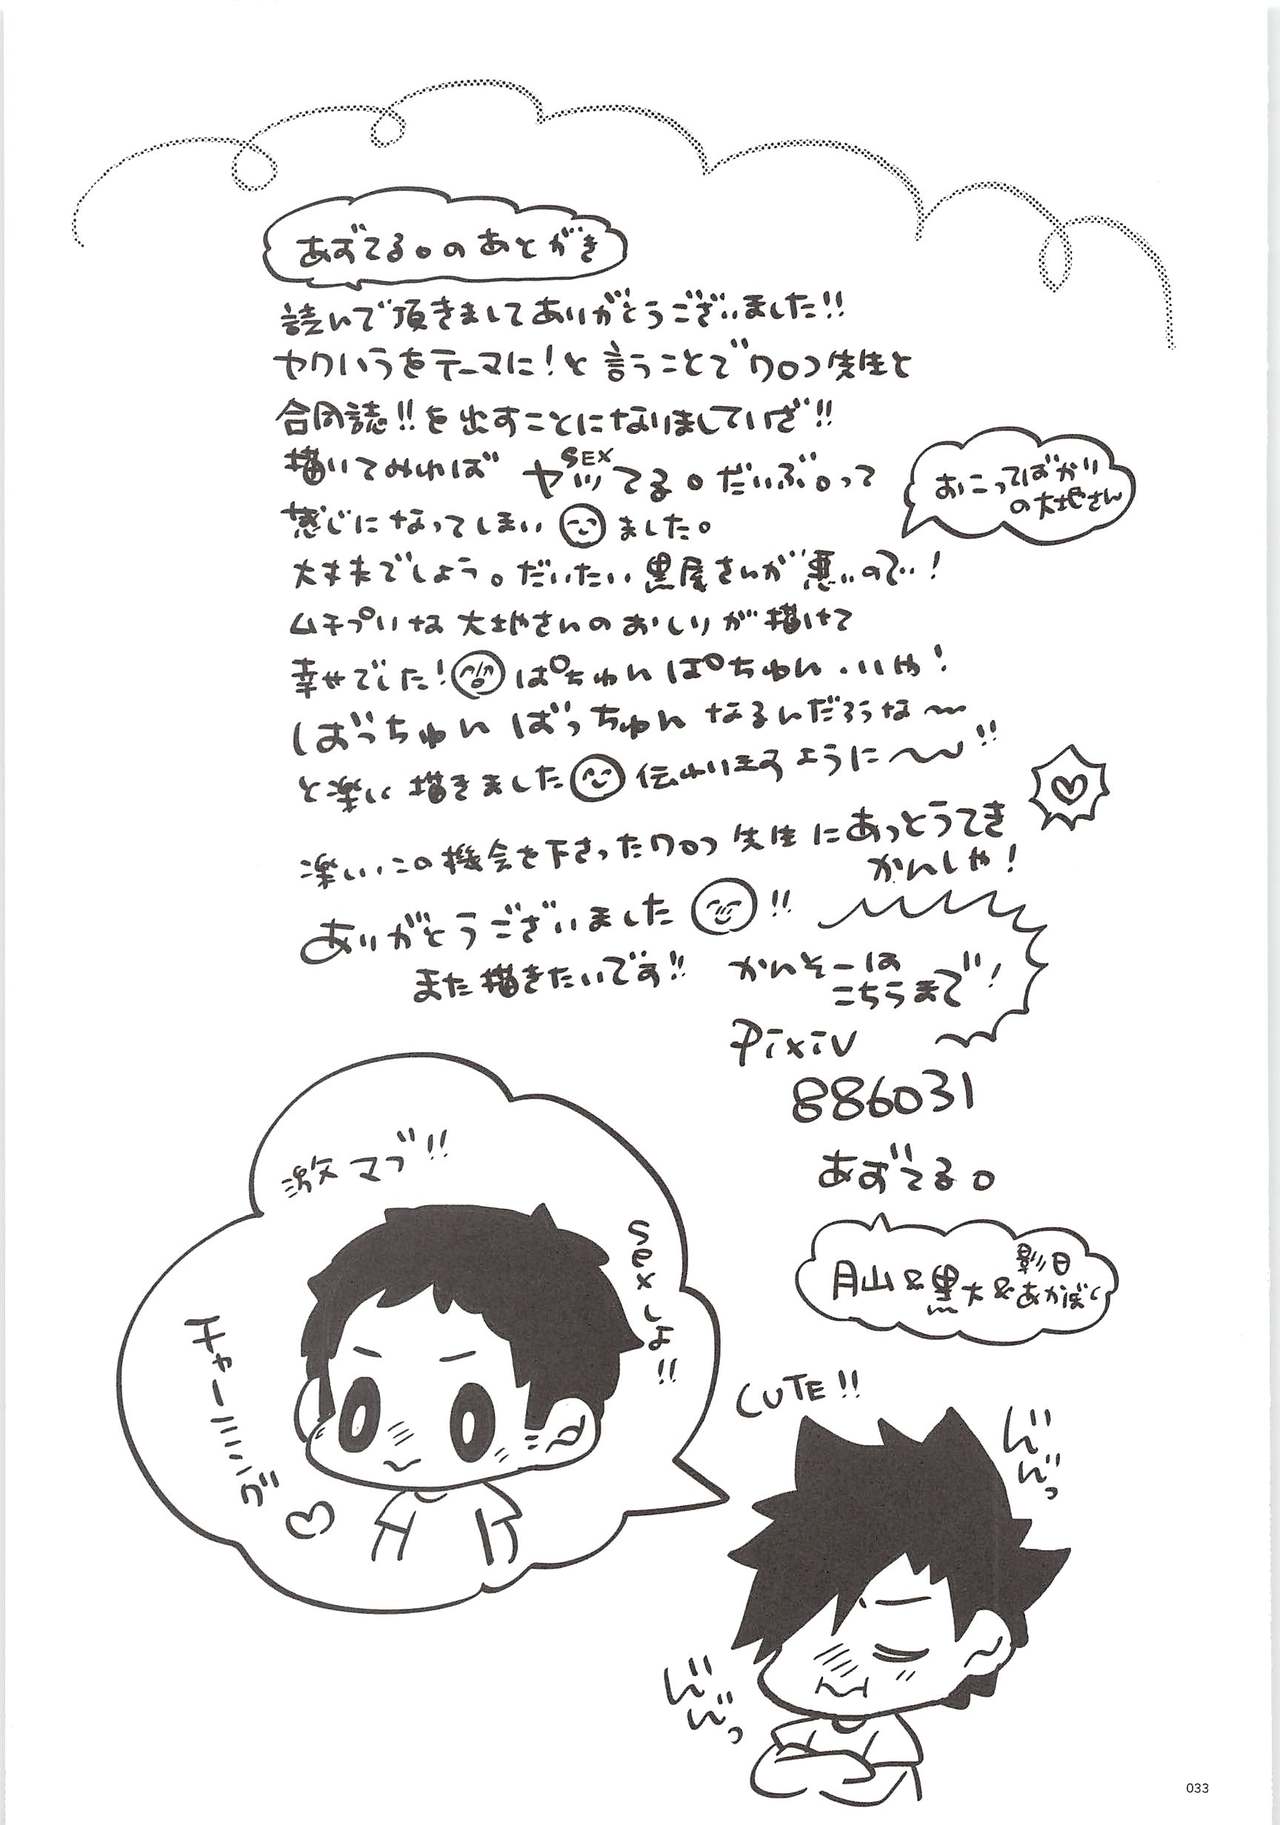 あずてる。のあとがき
読んで頂きましてありがとうございました!!
ヤクいうをテーマに!と言うことでワロつ先生と
合同誌!!を出すことになりましていざ!!
描いてみればヤッてる。だいぶ。って
SEX
感じになってしまいました。
おこってばかり
の大地さん
大丈夫でしょう。だいたい黒尾さんが悪いので!
ムチプリな大地さんのおしりが描けて
幸せでした!ぱちゅんぱちゅん・・いや!
ばっちゅんばっちゅんなるんだろうな〜
と楽しい描きました伝わりますように〜!!
楽しいこの機会を下さったワロつ先生にあっとうてき
かんしゃ!
ありがとうございました!!
また描きたいです!!
かんそーは
こちらまで!
Pixiv
886031
あずてる。
影日
月山&黒大&あかぼく
激マブ!!
sexしよ!!
チャーミング♡
CUTE!!
じんじんっ
じんじんっ
033